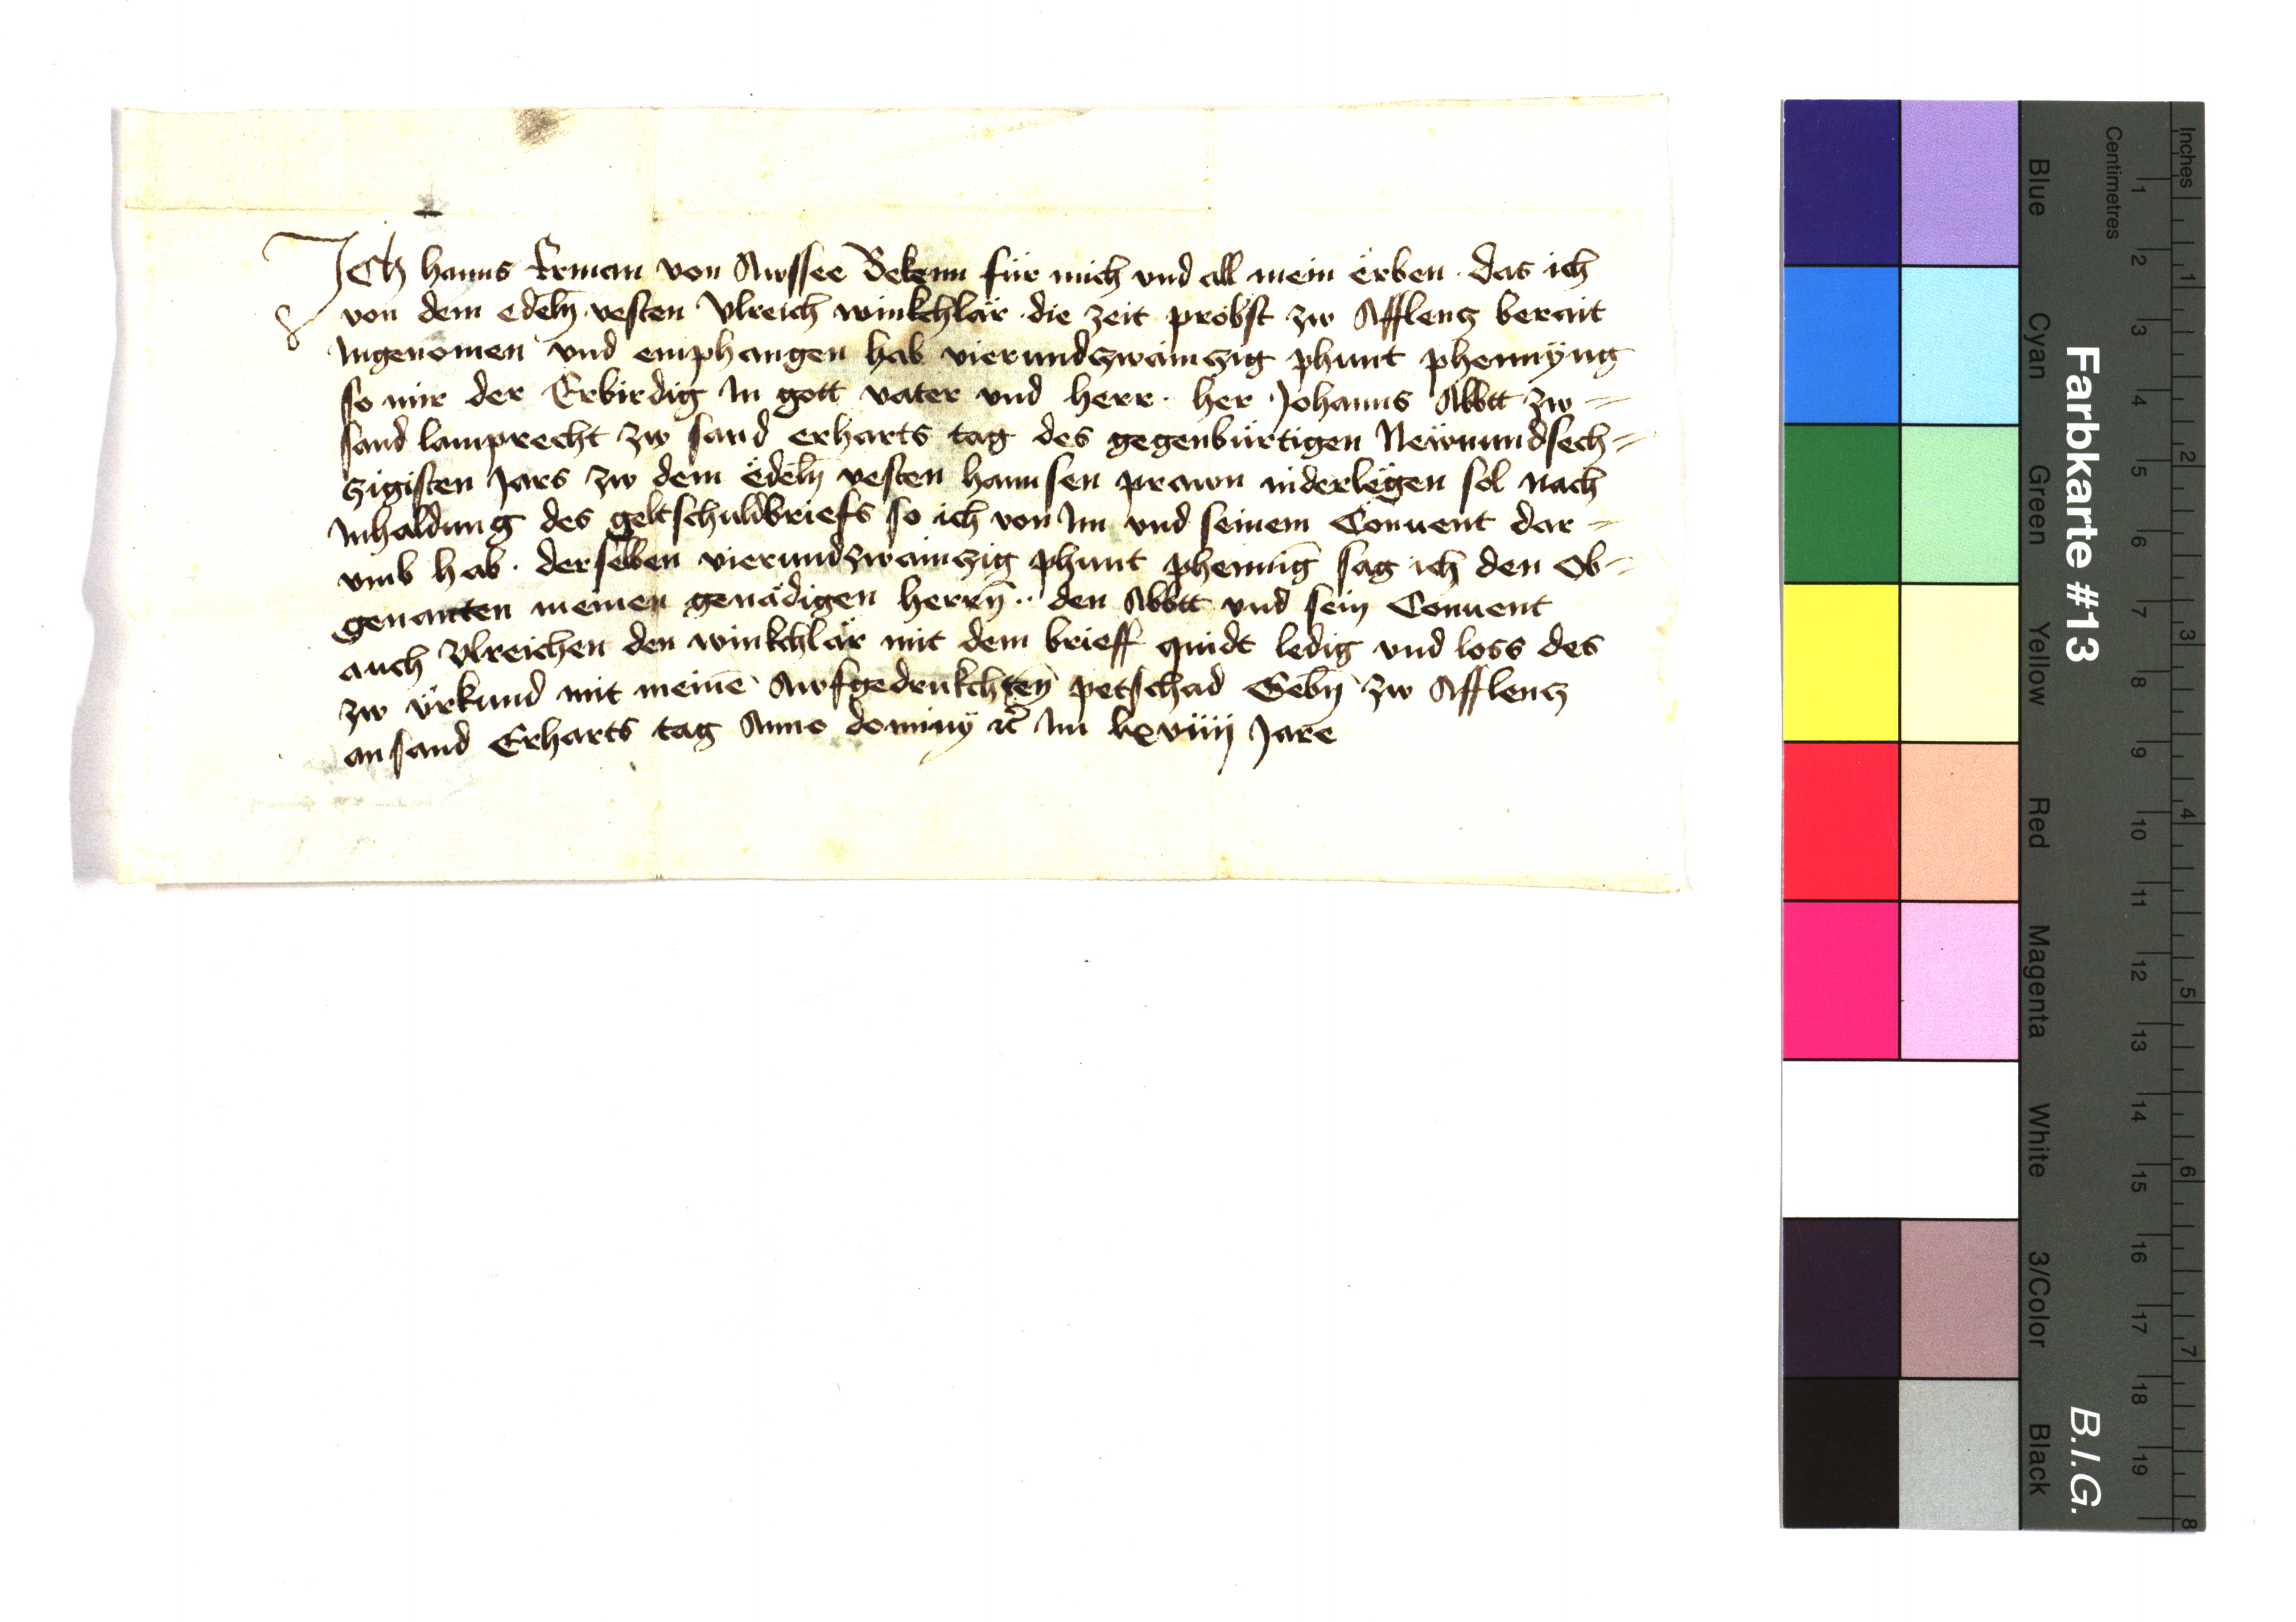 Ich Hanns Erman von Awssee Bekenn für mich vnd all mein erben das ich
von dem edeln̄ vesten Vlreich winkchlär die zeit probst zw Afflencz berait
Ingenomen vnd emphangen hab vierundczwainczig phunt phennÿng
so mir der Erbirdig In gott vater vnd herr her Johanns Abbtt zw =
sand lamprecht zw sand erharts tag des gegenbürtigen Newnundsech =
czigisten Jars zw dem ëdeln̄ vesten hannsen prawn niderlegen sol nach
Inhaldung des geltschuldbriefs so ich von Im vnd seinem Conuent dar =
vmb hab. derselben vierundzwainczig phunt phenniḡ sag ich den Ob =
genantten meinen genädigen herrn̄ .. den Abbtt vnd sein Conuent
auch Vlreichen den winkchlär mit dem brieff quidt ledig vnd loss des
zw vrkund mit meinē Awfgedrukchten̄ petschad Gebn̄ zw Afflencz
an sand Erharts tag Anno dominÿ etc̄ Im lxviiij Jare
Farbkarte #13
B.I.G.
Inches
1 2 3 4 5 6 7 8
Centimetres
1 2 3 4 5 6 7 8 9 10 11 12 13 14 15 16 17 18 19
Blue
Cyan
Green
Yellow
Red
Magenta
White
3/Color
Black